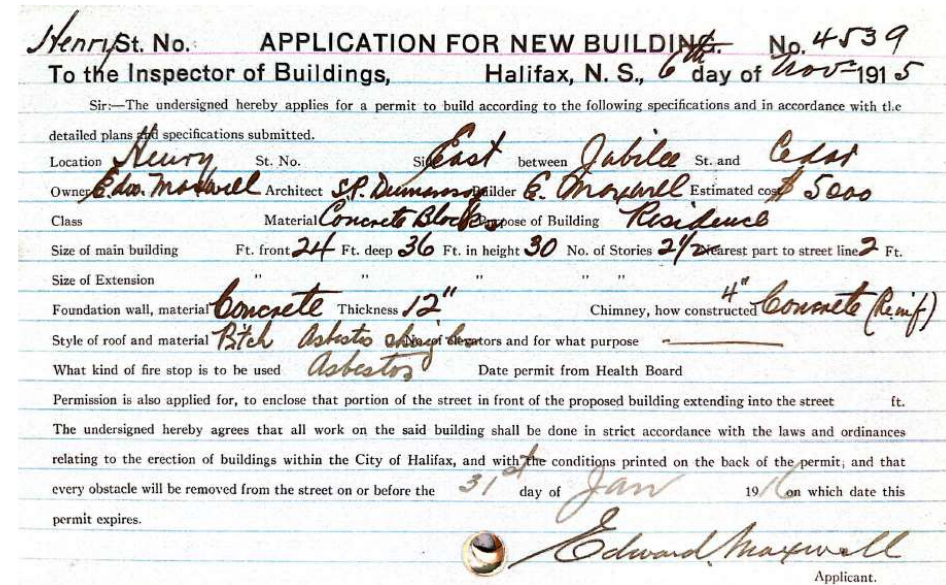 Henry St. No. APPLICATION FOR NEW BUILDING. No. 4539
To the Inspector of Buildings, Halifax, N. S., 6th day of Nov 1915
Sir:—The undersigned hereby applies for a permit to build according to the following specifications and in accordance with the
detailed plans and specifications submitted.
Location Henry St. No. Side East between Jubilee St. and Cedar
Owner Edw. Maxwell Architect S.P. Dumaresq Builder E. Maxwell Estimated cost $ 5000
Class Material Concrete Blocks Purpose of Building Residence
Size of main building Ft. front 24 Ft. deep 36 Ft. in height 30 No. of Stories 2 1/2 Nearest part to street line 2 Ft.
Size of Extension " " " " "
Foundation wall, material Concrete Thickness 12" Chimney, how constructed 4" Concrete (Reinf)
Style of roof and material Pitch Asbestos shingles No. of elevators and for what purpose —
What kind of fire stop is to be used Asbestos Date permit from Health Board
Permission is also applied for, to enclose that portion of the street in front of the proposed building extending into the street ft.
The undersigned hereby agrees that all work on the said building shall be done in strict accordance with the laws and ordinances
relating to the erection of buildings within the City of Halifax, and with the conditions printed on the back of the permit; and that
every obstacle will be removed from the street on or before the 31st day of Jan 1916 on which date this
permit expires.
Edward Maxwell
Applicant.